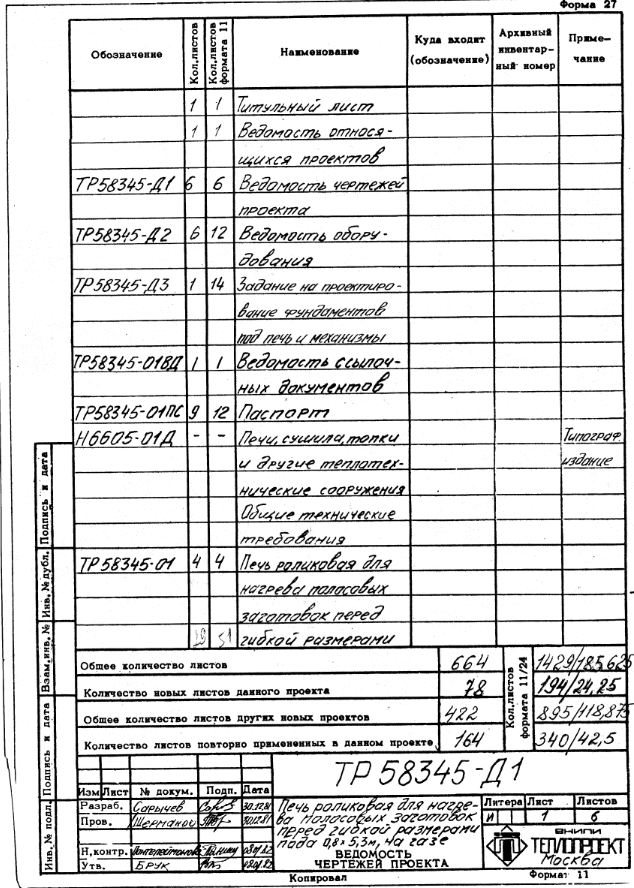 Форма 27
Обозначение Кол.листов Кол.листов формата 11 Наименование Куда входит (обозначение) Архивный инвентарный номер Примечание
1 1 Титульный лист
1 1 Ведомость относя-
щихся проектов
ТР58345-Д1 6 6 Ведомость чертежей
проекта
ТР58345-Д2 6 12 Ведомость обору-
дования
ТР58345-Д3 1 14 Задание на проектиро-
вание фундаментов
под печь и механизмы
ТР58345-01ВД 1 1 Ведомость ссылоч-
ных документов
ТР58345-01ПС 9 12 Паспорт
Н6605-01Д - - Печи, сушила, топки Типограф.
и другие теплотех- издание
нические сооружения
Общие технические
требования
ТР58345-01 4 4 Печь роликовая для
нагрева полосовых
заготовок перед
29 51 гибкой размерами
Общее количество листов 664 1429/185,625
Количество новых листов данного проекта 78 194/24,25
Общее количество листов других новых проектов 422 895/118,875
Количество листов повторно примененных в данном проекте 164 340/42,5
Кол.листов формата 11/24
ТР58345-Д1
Изм Лист № докум. Подп. Дата
Разраб. Сарычев 30.12.81
Пров. 30.12.81
Н.контр.
Утв. БРУК
Печь роликовая для нагре-
ва полосовых заготовок
перед гибкой размерами
пода 0,8х5,3м, на газе
ВЕДОМОСТЬ
ЧЕРТЕЖЕЙ ПРОЕКТА
Литера Лист Листов
И 1 6
ВНИПИ
ТЕПЛОПРОЕКТ
Москва
Копировал Формат 11
Инв.№ подл. Подпись и дата Взам.инв.№ Инв.№ дубл. Подпись и дата